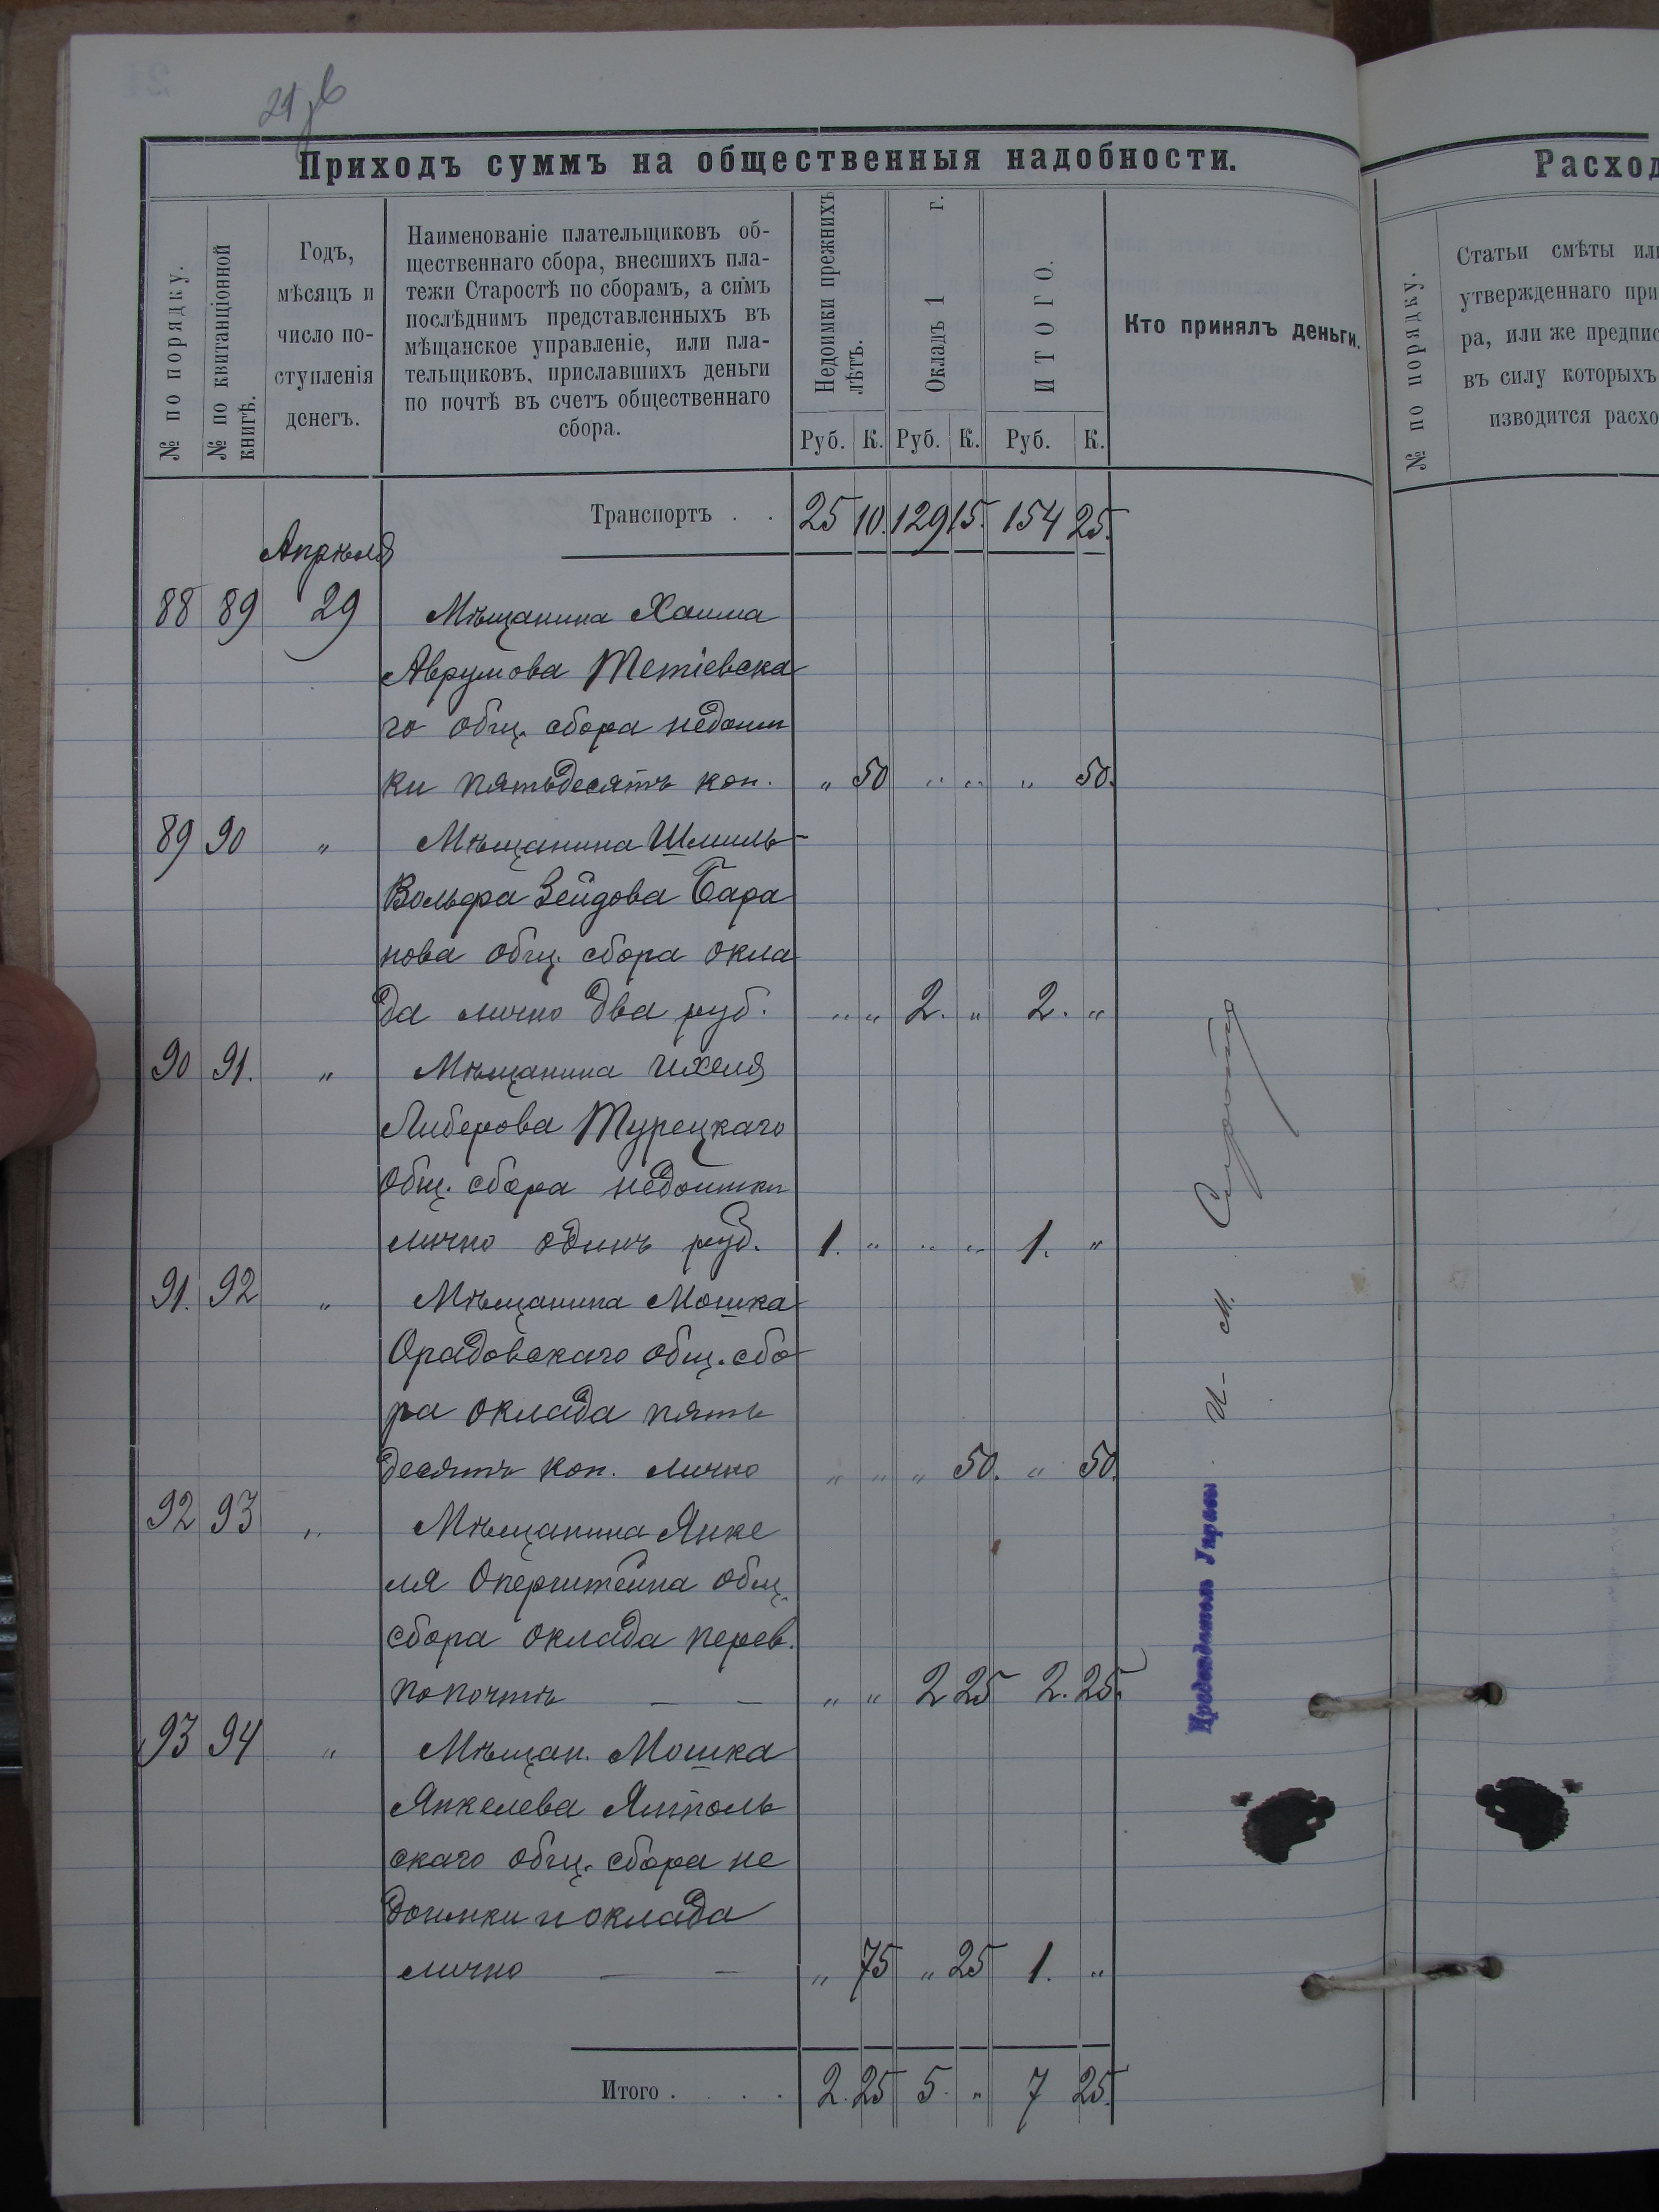 21
Приходъ суммъ на общественныя надобности.
№ по порядку.
№ по квитанціонной
книгѣ.
Годъ,
мѣсяцъ и
число по-
ступленія
денегъ.
Наименованіе плательщиковъ об-
щественнаго сбора, внесшихъ пла-
тежи Старостѣ по сборамъ, а симъ
послѣднимъ представленныхъ въ
мѣщанское управленіе, или пла-
тельщиковъ, приславшихъ деньги
по почтѣ въ счетъ общественнаго
сбора.
Недоимки прежнихъ
лѣтъ.
Окладъ 1 г.
ИТОГО.
Кто принялъ деньги.
Руб. К. Руб. К. Руб. К.
Транспортъ . . 25 10. 129 15. 154 25.
Апрѣля
88 89 29 Мѣщанина Хаима
Аврумова Тетіевска
го общ. сбора недоим
ки пятьдесятъ коп. „ 50 „ „ „ 50.
89 90 „ Мѣщанина Шмиль-
Вольфа Зейдова Бара
нова общ. сбора окла
да лично два руб. „ „ 2. „ 2. „
90 91. „ Мѣщанина Ихеля
Либерова Турецкаго
общ. сбора недоимки
лично одинъ руб. 1. „ „ „ 1. „
91. 92 „ Мѣщанина Мошка
Орадовскаго общ. сбо
ра оклада пять
десятъ коп. лично „ „ „ 50. „ 50.
92 93 „ Мѣщанина Янке
ля Оперштейна общ.
сбора оклада перев.
по почтѣ — — „ „ 2 25 2. 25.
93 94 „ Мѣщан. Мошка
Янкелева Ямполь
скаго общ. сбора не
доимки и оклада
лично — — „ 75 „ 25 1. „
Итого . . . . 2. 25 5. „ 7 25.
И. М.
Расход
№ по порядку.
Статьи смѣты ил
утвержденнаго при
ра, или же предпис
въ силу которыхъ
изводится расхо